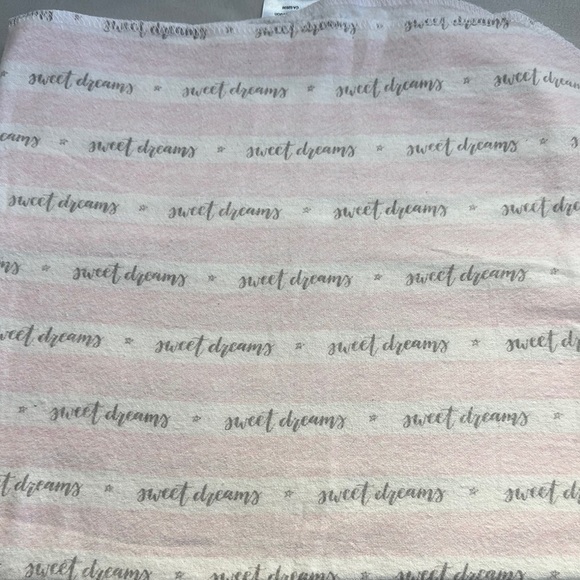 sweet dreams * sweet dreams * sweet dreams
* sweet dreams * sweet dreams * sweet dreams * sweet dreams
eams * sweet dreams * sweet dreams * sweet dreams *
sweet dreams * sweet dreams * sweet dreams * sweet dre
ms * sweet dreams * sweet dreams * sweet dreams *
weet dreams * sweet dreams * sweet dreams * sweet d
* sweet dreams * sweet dreams * sweet dreams *
t dreams * sweet dreams * sweet dreams * sweet d
sweet dreams * sweet dreams * sweet dreams *